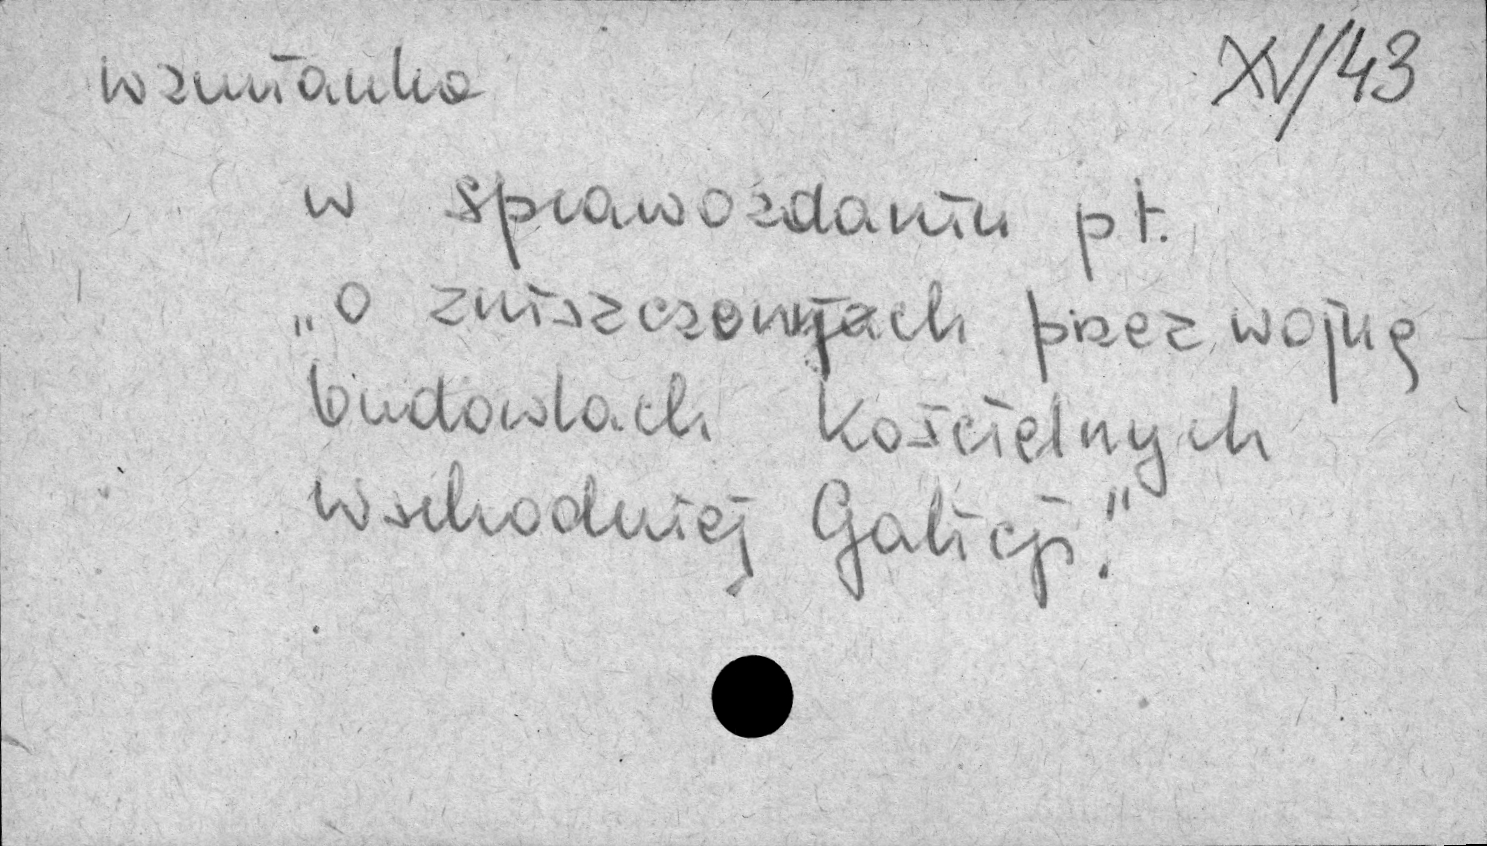 wzmianka
XV/43
w sprawozdaniu pt.
„O zniszczonych przez wojnę
budowlach kościelnych
wschodniej Galicji."